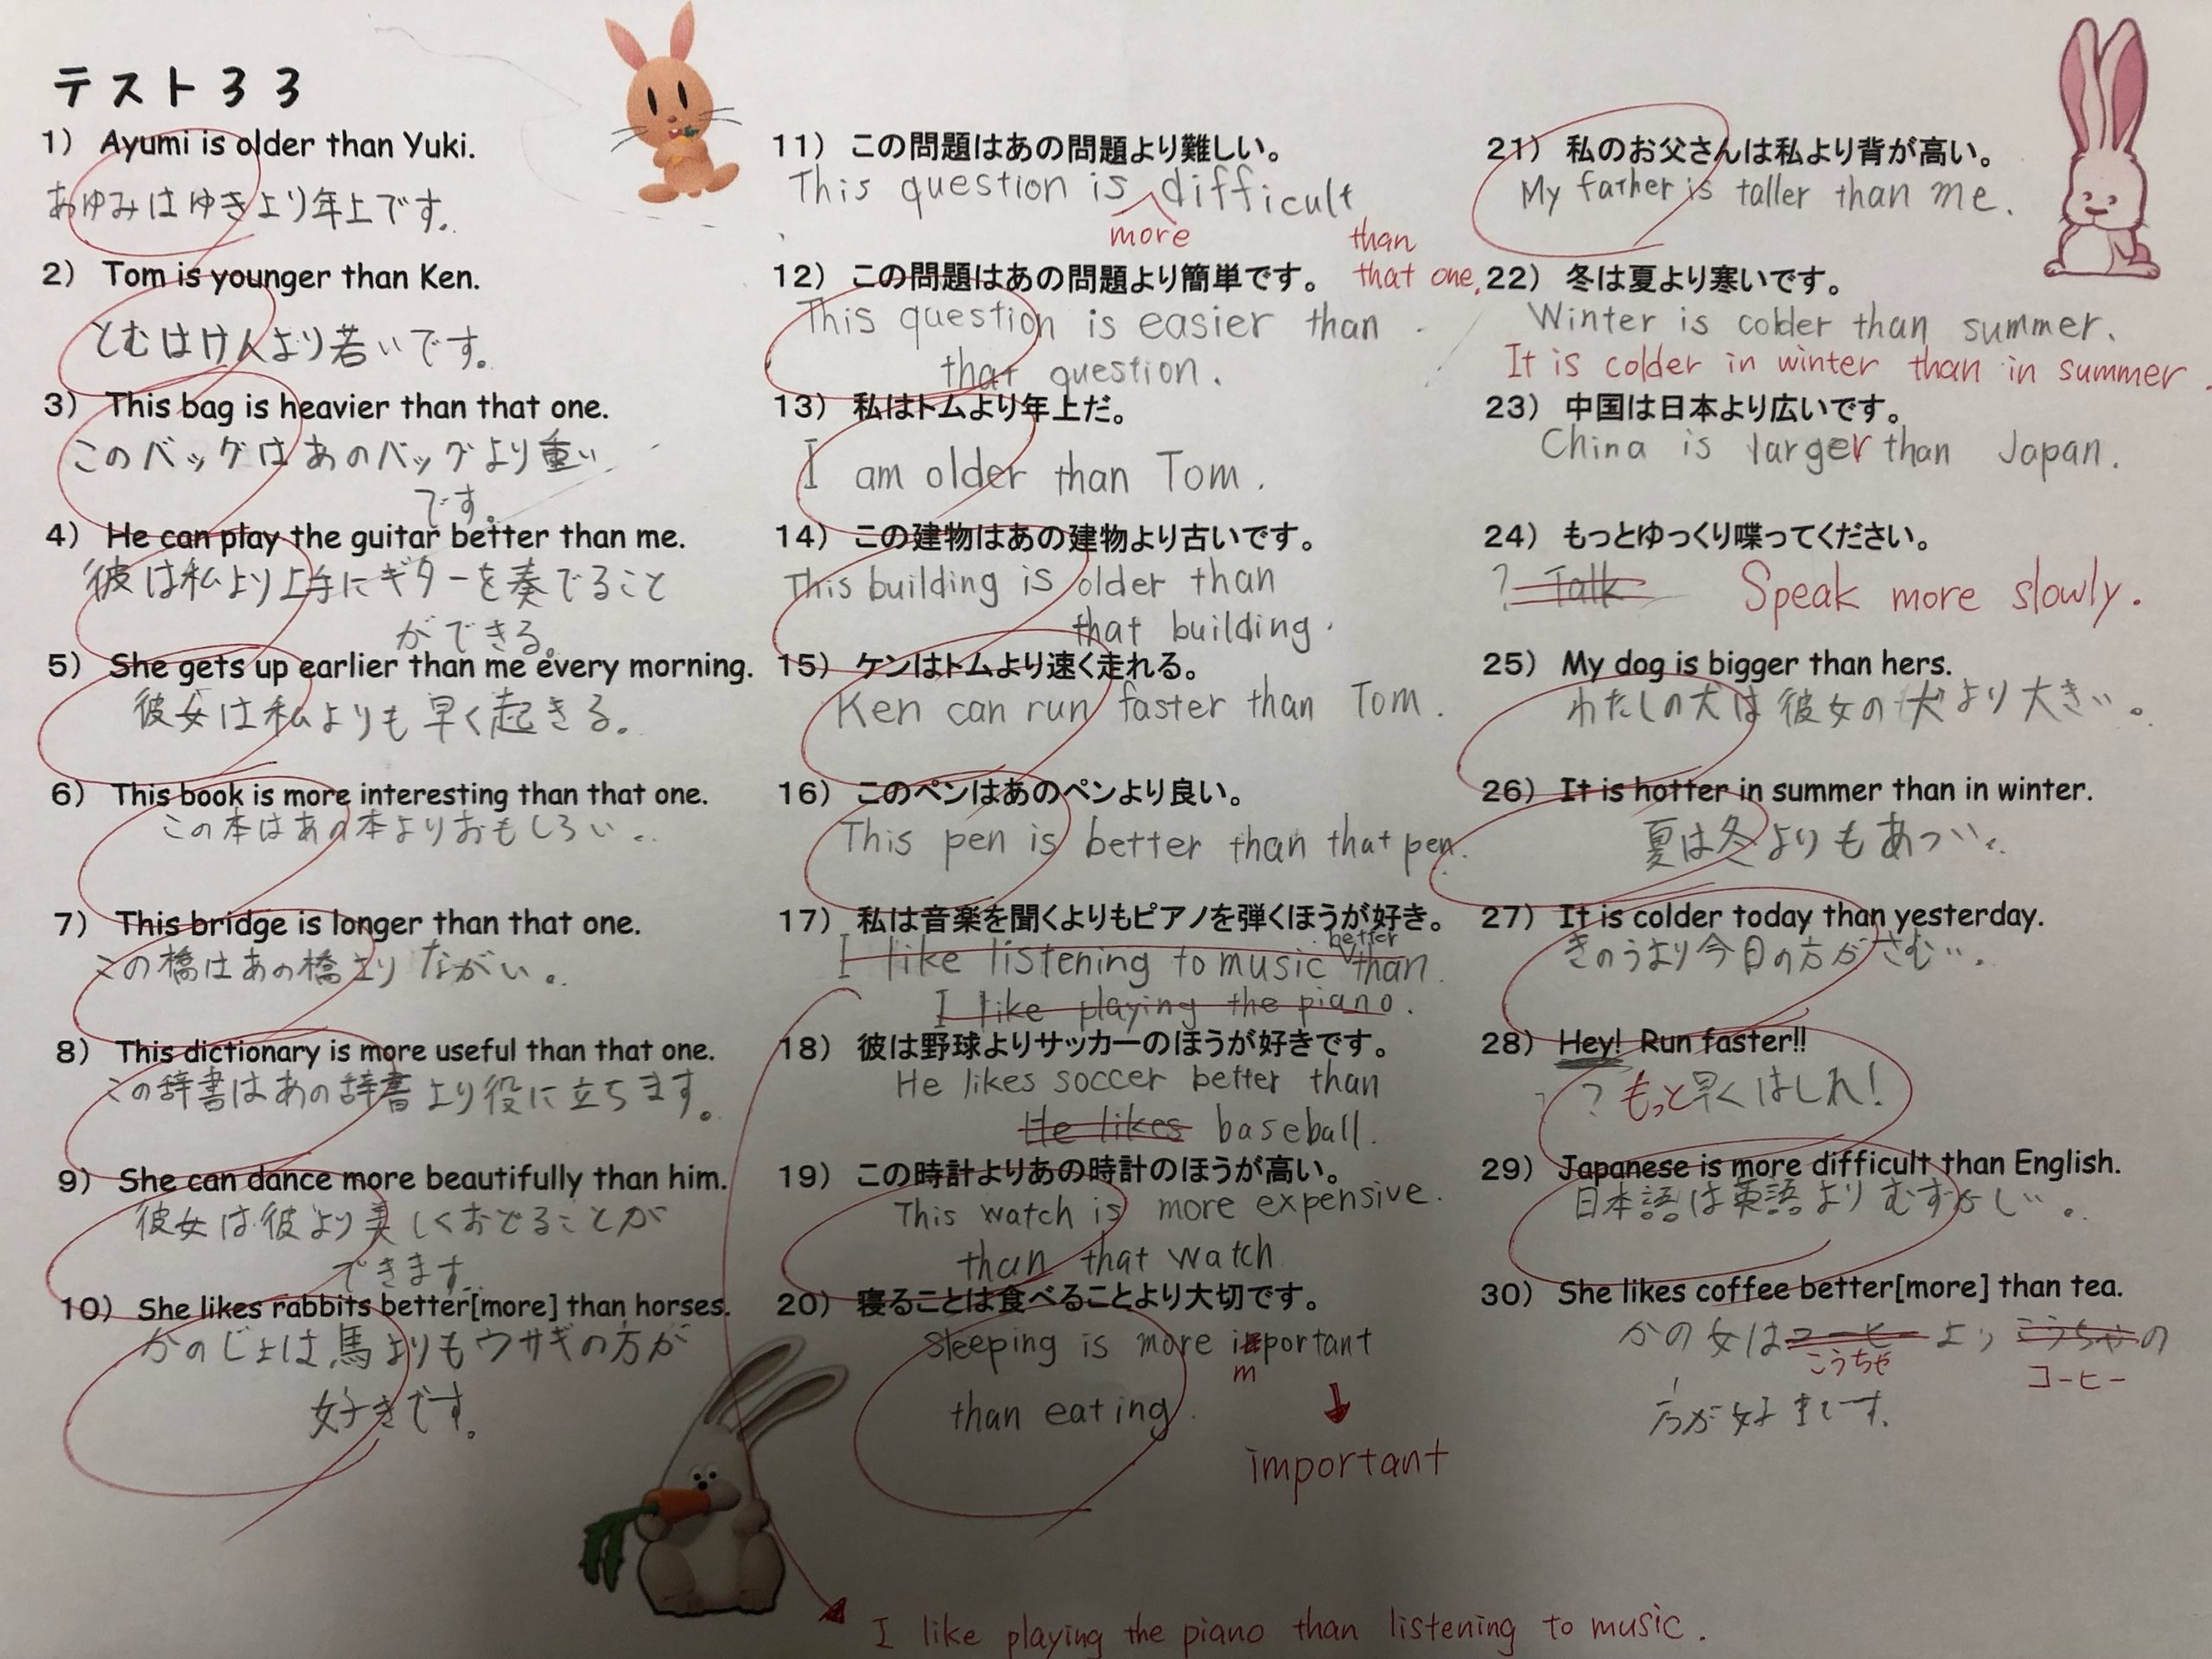 テスト33
1) Ayumi is older than Yuki.
あゆみはゆきより年上です。
2) Tom is younger than Ken.
とむはけんより若いです。
3) This bag is heavier than that one.
このバッグはあのバッグより重い
です。
4) He can play the guitar better than me.
彼は私より上手にギターを奏でること
ができる。
5) She gets up earlier than me every morning.
彼女は私よりも早く起きる。
6) This book is more interesting than that one.
この本はあの本よりおもしろい。
7) This bridge is longer than that one.
この橋はあの橋よりながい。
8) This dictionary is more useful than that one.
この辞書はあの辞書より役に立ちます。
9) She can dance more beautifully than him.
彼女は彼より美しくおどることが
できます。
10) She likes rabbits better[more] than horses.
かのじょは馬よりもウサギの方が
好きです。
11) この問題はあの問題より難しい。
This question is difficult
more
than
that one.
12) この問題はあの問題より簡単です。
This question is easier than
that question.
13) 私はトムより年上だ。
I am older than Tom.
14) この建物はあの建物より古いです。
This building is older than
that building.
15) ケンはトムより速く走れる。
Ken can run faster than Tom.
16) このペンはあのペンより良い。
This pen is better than that pen.
17) 私は音楽を聞くよりもピアノを弾くほうが好き。
better
I like listening to music than
I like playing the piano.
18) 彼は野球よりサッカーのほうが好きです。
He likes soccer better than
He likes baseball.
19) この時計よりあの時計のほうが高い。
This watch is more expensive.
than that watch
20) 寝ることは食べることより大切です。
Sleeping is more important
m
than eating.
important
I like playing the piano than listening to music.
21) 私のお父さんは私より背が高い。
My father is taller than me.
22) 冬は夏より寒いです。
Winter is colder than summer.
It is colder in winter than in summer.
23) 中国は日本より広いです。
China is larger than Japan.
24) もっとゆっくり喋ってください。
? Talk Speak more slowly.
25) My dog is bigger than hers.
わたしの犬は彼女の犬より大きい。
26) It is hotter in summer than in winter.
夏は冬よりもあつい。
27) It is colder today than yesterday.
きのうより今日の方がさむい。
28) Hey! Run faster!!
? もっと早くはしれ!
29) Japanese is more difficult than English.
日本語は英語よりむずかしい。
30) She likes coffee better[more] than tea.
かの女はコーヒーよりこうちゃの
こうちゃ コーヒー
方が好きです。